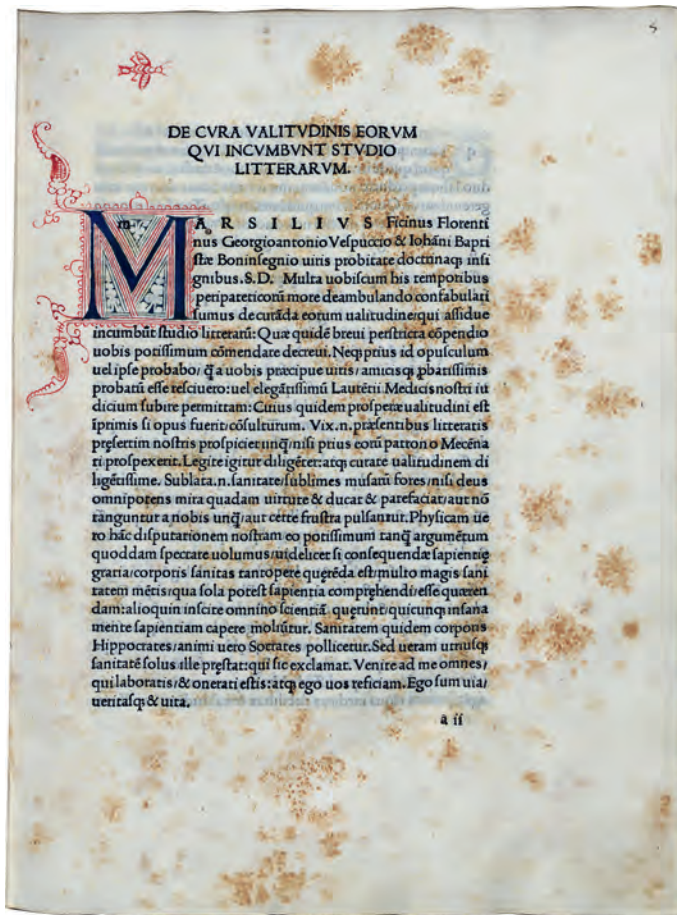 5
DE CVRA VALITVDINIS EORVM
QVI INCVMBVNT STVDIO
LITTERARVM.
MARSILIVS Ficinus Florenti
nus Georgioantonio Vespuccio & Iohāni Bapti
stæ Boninsegnio uiris probitate doctrinaq; insi
gnibus.S.D. Multa uobiscum his temporibus
peripateticorū more deambulando confabulati
sumus de curāda eorum ualitudine/qui assidue
incumbūt studio litterarū: Quæ quidē breui perstricta cōpendio
uobis potissimum cōmendare decreui. Neq; prius id opusculum
uel ipse probabo/ q̄ a uobis præcipue uiris/ amicisq; pbatissimis
probatū esse resciuero: uel elegātissimū Lautētii Medicis nostri iu
dicium subire permittam: Cuius quidem prosperæ ualitudini est
īprimis si opus fuerit cōsulturum. Vix.n.præsentibus litteratis
pręsertim nostris prospicietunq̄/nisi prius eorū patrono Mecęna
ti prospexerit. Legite igitur diligēter: atq; curate ualitudinem di
ligētissime. Sublata.n.sanitate/sublimes musarū fores/nisi deus
omnipotens mira quadam uirtute & ducat & patefaciat/aut nō
tanguntur a nobis unq̄/aut certe frustra pulsantur. Physicam ue
ro hāc disputationem nostram eo potissimum tanq̄ argumētum
quoddam spectare uolumus/uidelicet si consequendæ sapientię
gratia/corporis sanitas tantopere quęrēda est/multo magis sani
tatem mētis/qua sola potest sapientia comprehendi/esse quæren
dam: alioquin inscite omnino scientiā quęrunt/quicunq; insana
mente sapientiam capere moliūtur. Sanitatem quidem corporis
Hippocrates/animi uero Socrates pollicetur. Sed ueram utriusq;
sanitatē solus ille pręstat: qui sic exclamat. Venite ad me omnes/
qui laboratis/& onerati estis: atq; ego uos reficiam. Ego sum uia/
ueritasq; & uita.
a ii